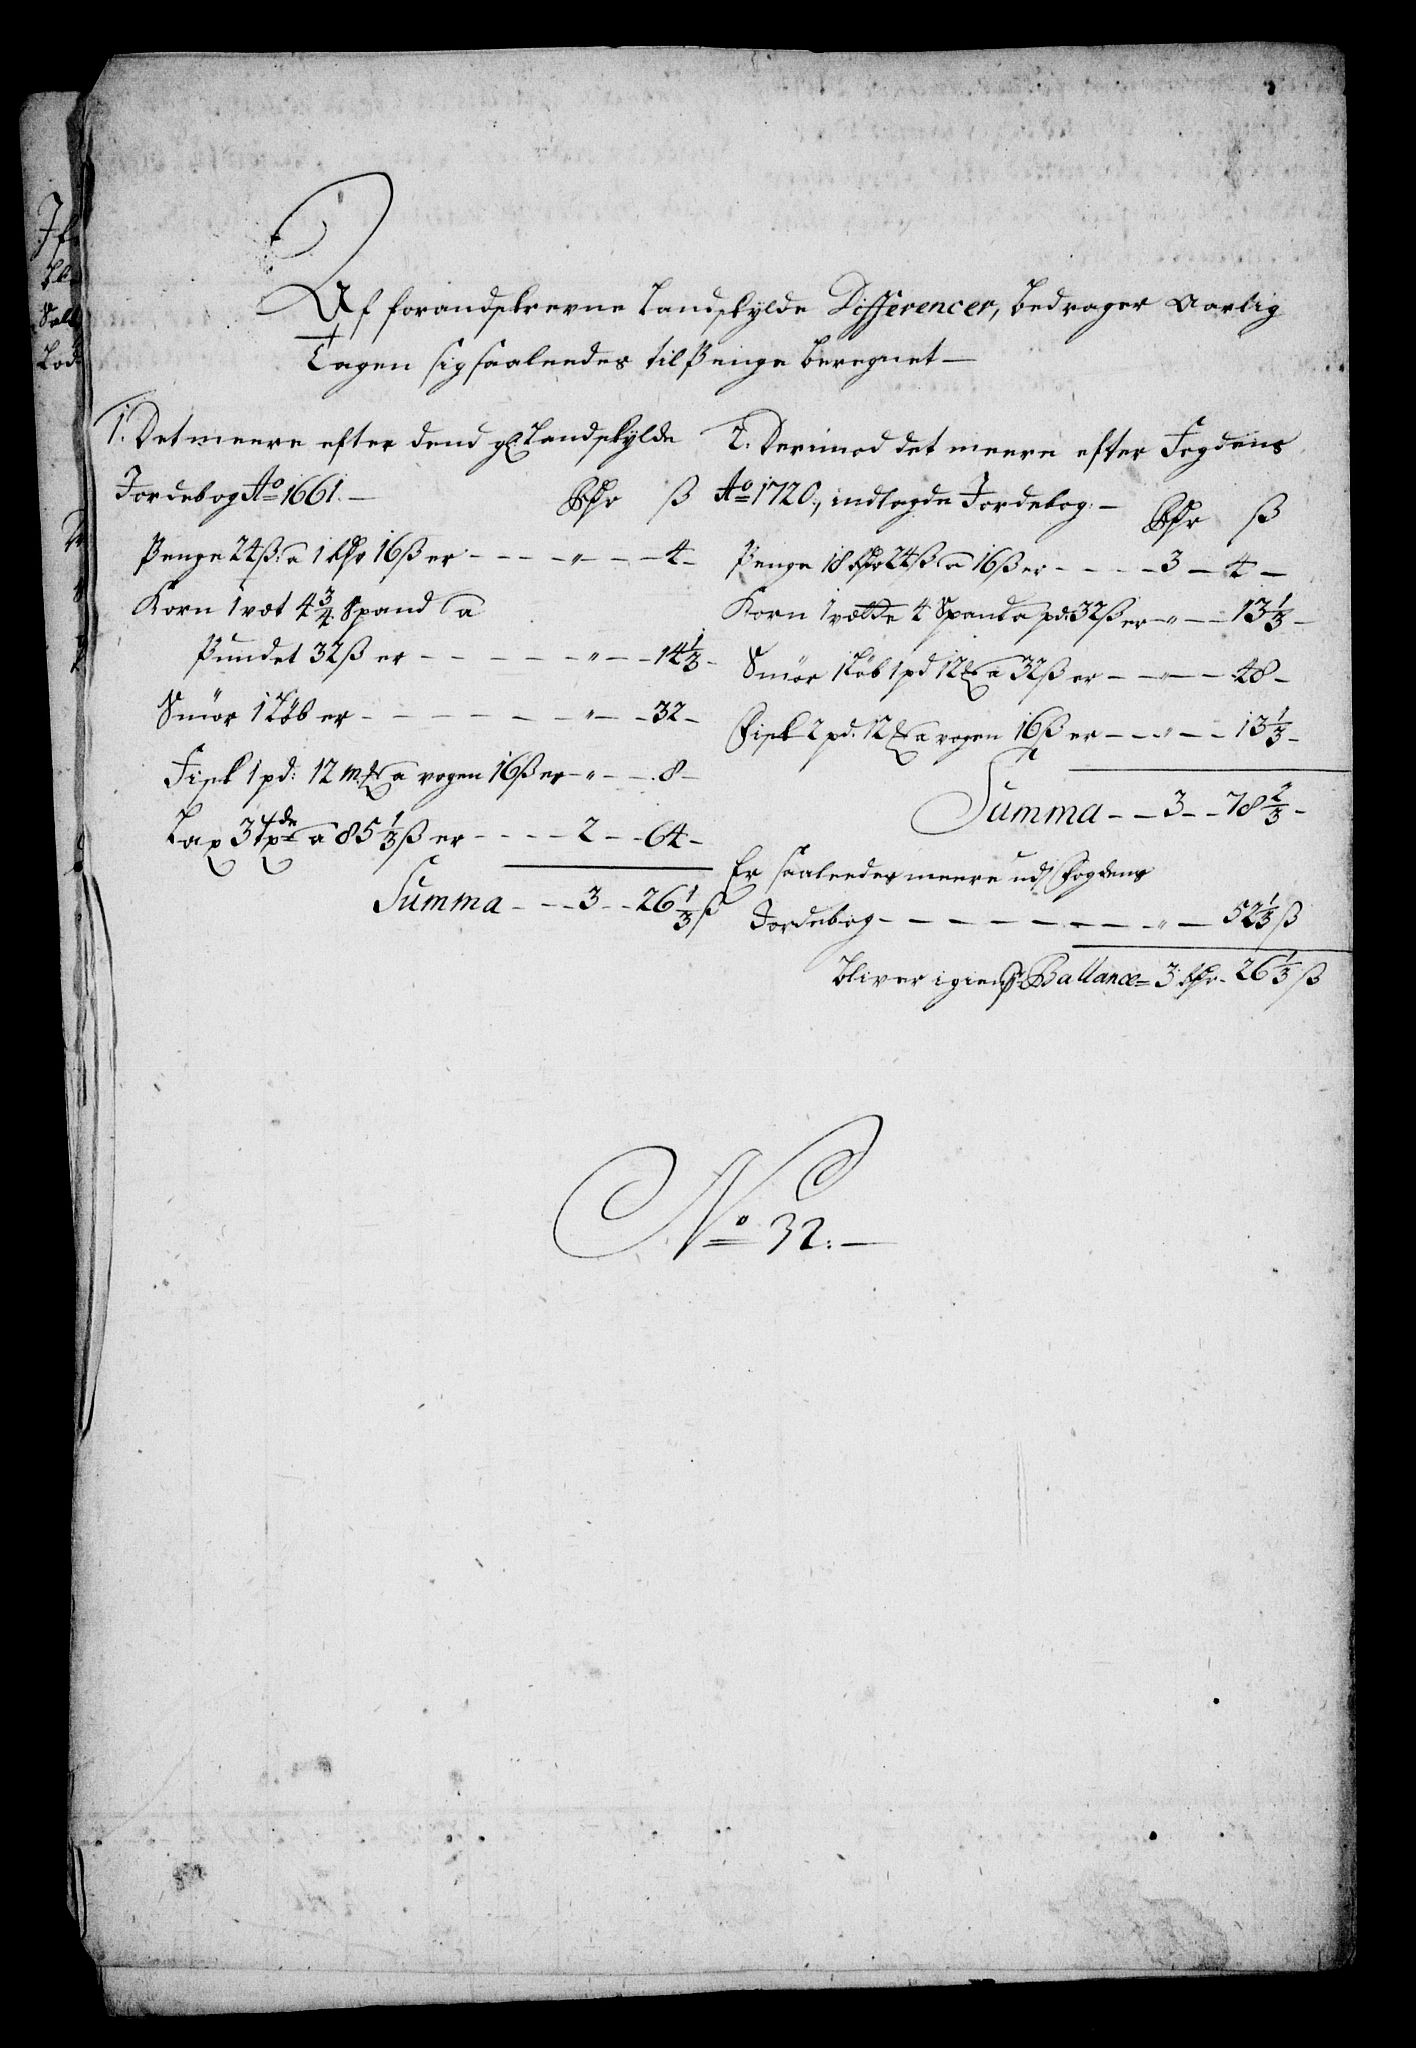 Af forandskrevne Landskylds Differencer, bedrager Aarlig
Tagen sig saaleedes til Penge beregnet —
1. Det meere efter dend gl Landskylds
Jordebog Ao 1661. —
Rdr ß
Penge 24 ß: a 1 Rdr 16 ß er - - - " - - 4 -
Korn 1 vet 4 3/4 Spand a
Pundet 32 ß er - - - - - " - - 14 1/3 -
Smör 1 Løb er - - - - - " - - 32 -
Fisk 1 pd: 12 mk a vogen 16 ß er - " - - 8 -
Lax 3 Tpde a 85 1/3 ß er - - - - 2 - - 64 -
Summa - - - 3 - - 26 1/3 ß
2. Derimod det meere efter Fogdens
Ao 1720, indlagde Jordebog: —
Rdr ß
Penge 18 Rdr 24 ß a 16 ß er - - - - 3 - 4 -
Korn 1 vette 4 Spand a pd: 32 ß er - " - - 13 1/3 -
Smör 1 Løb 1 pd 12 mk a 32 ß er - - " - - 48 -
Fisk 2 pd. 12 mk a vogen 16 ß er - - " - - 13 1/3 -
Summa - - 3 - - 78 2/3 -
Er saaleedes meere ud j Fogdens
Jordebog - - - - - - - - " - 52 1/3 ß
bliver igien pr Ballance = 3 Rdr - 26 1/3 ß
No 32: —